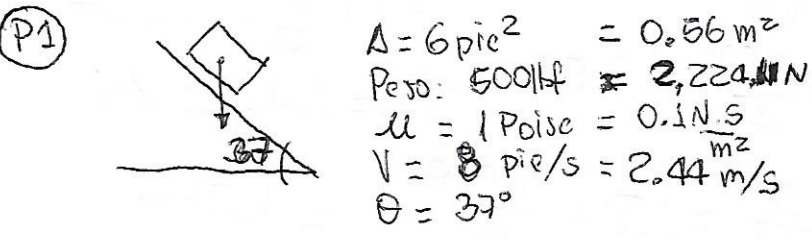 P1
A = 6 pie² = 0.56 m²
Peso: 500lbf = 2,224 N
μ = 1 Poise = 0.1 N.S/m²
V = 8 pie/s = 2.44 m/s
θ = 37°
37